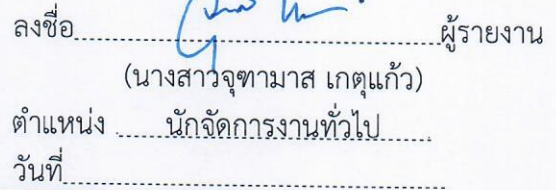 ลงชื่อ........................................................ผู้รายงาน
(นางสาวจุฑามาส เกตุแก้ว)
ตำแหน่ง ......นักจัดการงานทั่วไป......
วันที่........................................................